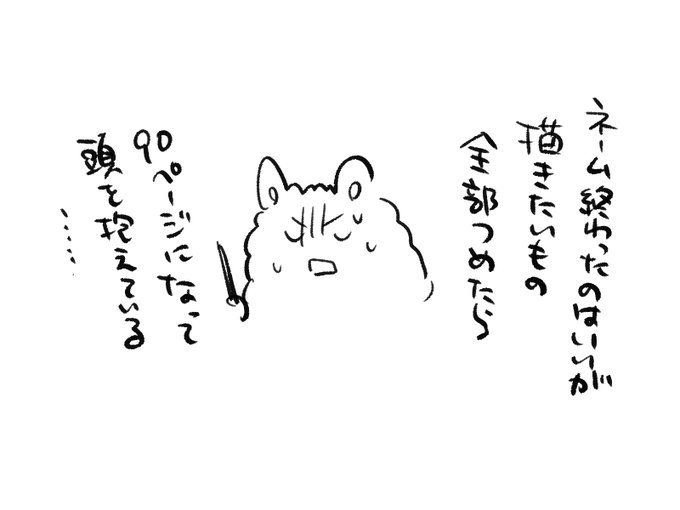 ネーム終わったのはいいが
描きたいもの
全部つめたら
90ページになって
頭を抱えている
……